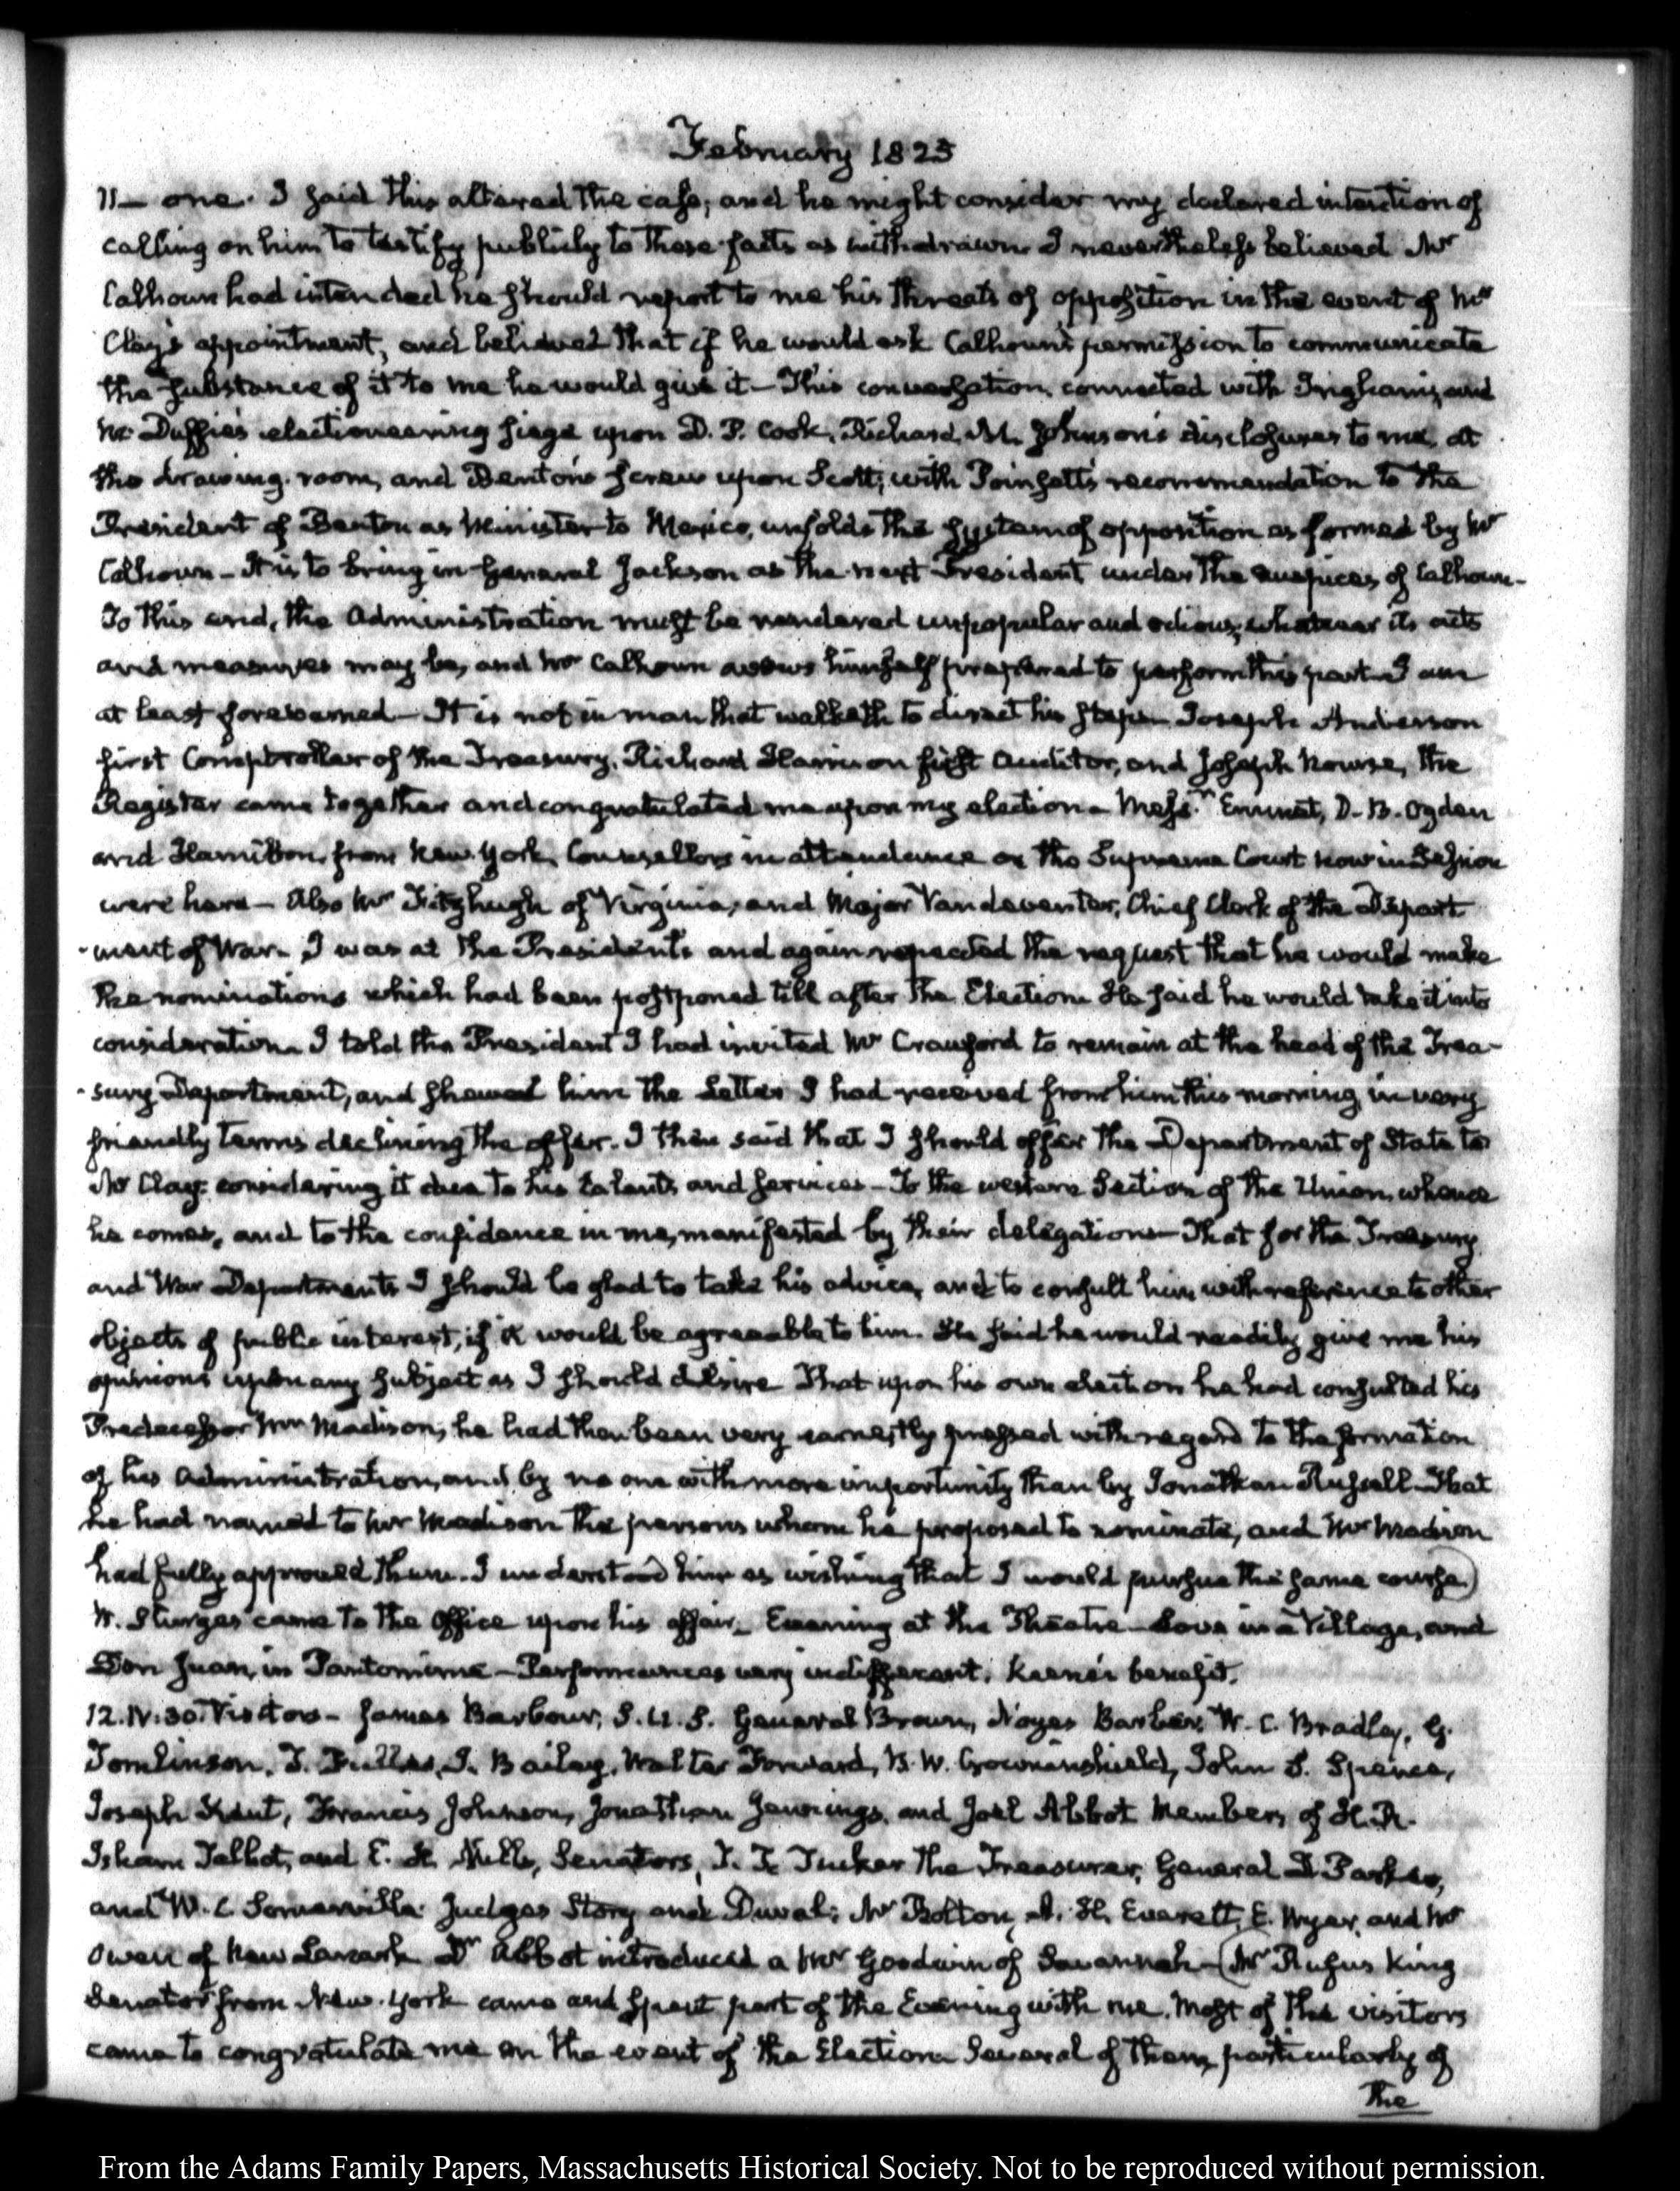 February 1825
11— one. I said this altered the case, and he might consider my declared intention of
calling on him to testify publicly to those facts as withdrawn I nevertheless believed Mr
Calhoun had intended he should report to me his threats of opposition in the event of Mr
Clay's appointment, and believed that if he would ask Calhoun's permission to communicate
the substance of it to me he would give it— This conversation connected with Ingham's, and
Mc Duffie's electioneering siege upon D. P. Cook, Richard M. Johnson's disclosures to me, at
the drawing-room, and Benton's screw upon Scott; with Poinsett's recommendation to the
President of Benton as Minister to Mexico, unfolds the system of opposition as formed by Mr
Calhoun— It is to bring in General Jackson as the next President under the auspices of Calhoun—
To this end, the Administration must be rendered unpopular and odious, whatever its acts
and measures may be, and Mr Calhoun avows himself prepared to perform this part I am
at least forewarned— It is not in man that walketh to direct his steps— Joseph Anderson
first Comptroller of the Treasury, Richard Harrison first Auditor, and Joseph Nourse, the
Register came together and congratulated me upon my election— Messrs Emmet, D. B. Ogden
and Hamilton, from New-York, Counsellors in attendance on the Supreme Court now in Session
were here— Also Mr Fitzhugh of Virginia, and Major Vandeventer, Chief Clerk of the Depart
-ment of War. I was at the President's and again repeated the request that he would make
the nominations which had been postponed till after the Election. He said he would take it into
consideration. I told the President I had invited Mr Crawford to remain at the head of the Trea-
-sury Department, and shewed him the Letter I had received from him this morning, in very
friendly terms declining the offer. I then said that I should offer the Department of State to
Mr Clay: considering it due to his talents and services— To the western Section of the Union, whence
he comes, and to the confidence in me, manifested by their delegations— That for the Treasury
and War Departments I should be glad to take his advice, and to consult him with reference to other
objects of public interest, if it would be agreeable to him. He said he would readily give me his
opinions upon any subject as I should desire That upon his own election he had consulted his
Predecessor Mr Madison; he had then been very earnestly pressed with regard to the formation
of his Administration, and by no one with more importunity than by Jonathan Russell— That
he had named to Mr Madison the persons whom he proposed to nominate, and Mr Madison
had fully approved them. I understood him as wishing that I would pursue the same course.)
W. Sturges came to the Office upon his affair. Evening at the Theatre— Love in a Village, and
Don Juan, in Pantomime— Performances very indifferent. Keene's benefit.
12. IV:30. Visitors— James Barbour, S.U.S. General Brown, Noyes Barber, W. C. Bradley, G.
Tomlinson, T. Fuller, J. Bailey, Walter Forward, B. W. Crowninshield, John S. Spence,
Joseph Kent, Francis Johnson, Jonathan Jennings, and Joel Abbot Members of H.R.
Isham Talbot, and E. H. Mills, Senators, T. T. Tucker the Treasurer, General D Parker,
and W. C. Somerville. Judges Story and Duval; Mr Bolton, A. H. Everett, E. Wyer, and Mr
Owen of New Lanark Dr Abbot introduced a Mr Goodwin of Savannah— (Mr Rufus King
Senator from New-York came and spent part of the Evening with me. Most of the visitors
came to congratulate me on the event of the Election Several of them, particularly of
The
From the Adams Family Papers, Massachusetts Historical Society. Not to be reproduced without permission.